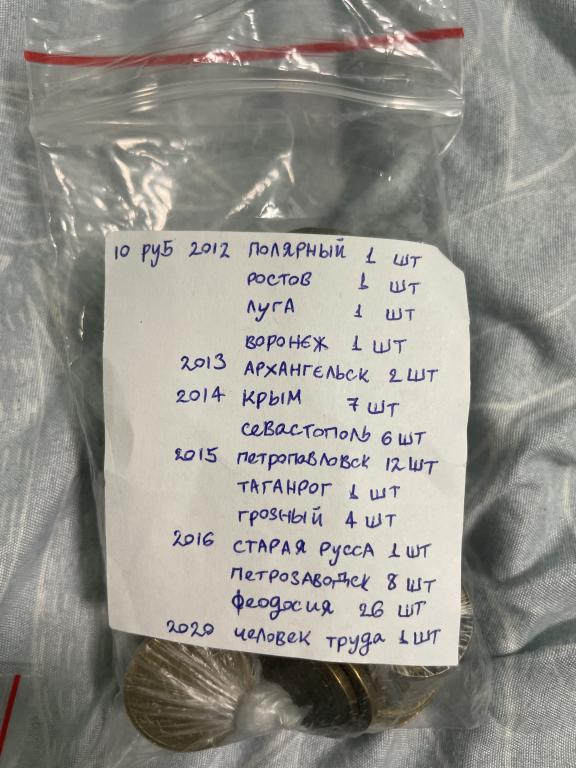 10 руб 2012 Полярный 1 шт
Ростов 1 шт
Луга 1 шт
Воронеж 1 шт
2013 Архангельск 2 шт
2014 Крым 7 шт
Севастополь 6 шт
2015 Петропавловск 12 шт
Таганрог 1 шт
Грозный 4 шт
2016 Старая Русса 1 шт
Петрозаводск 8 шт
Феодосия 26 шт
2020 Человек труда 1 шт